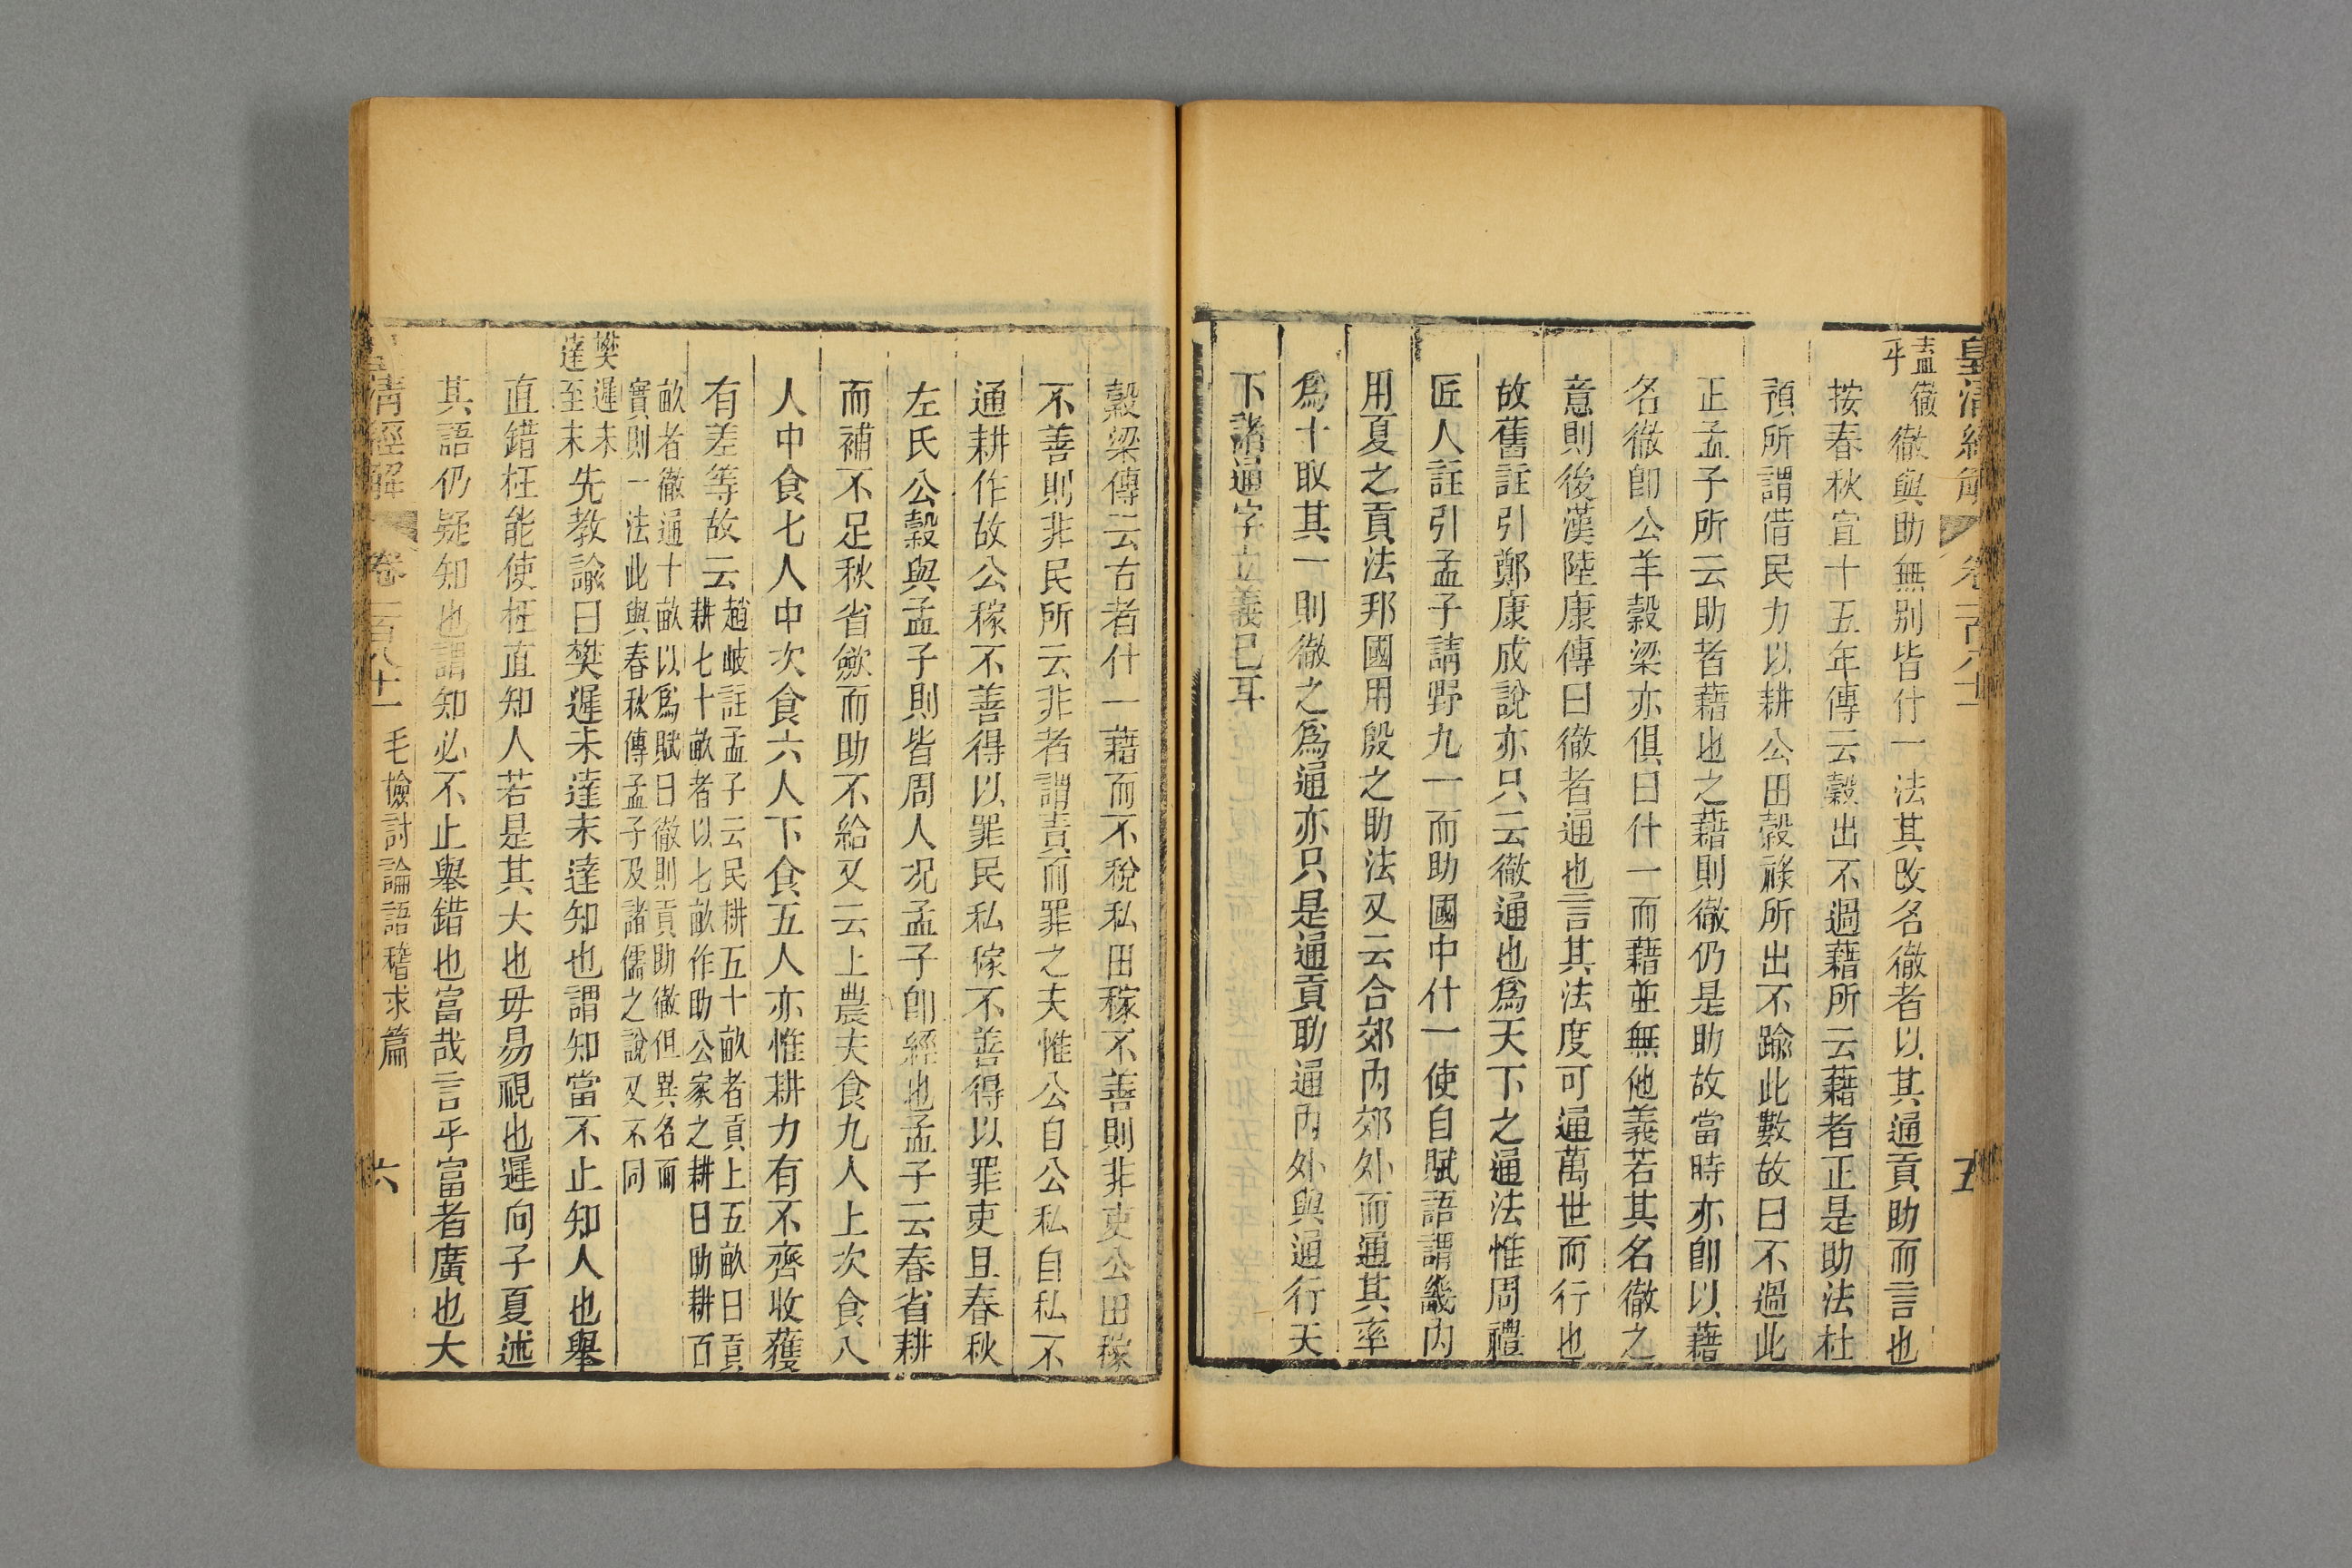 皇清經解 卷一百八十一 五
盍徹乎 徹與助無別皆什一法其改名徹者以其通貢助而言也
按春秋宣十五年傳云穀出不過藉所云藉者正是助法杜
預所謂借民力以耕公田穀祿所出不踰此數故曰不過此
正孟子所云助者藉也之藉則徹仍是助故當時亦卽以藉
名徹卽公羊穀梁亦俱曰什一而藉並無他義若其名徹之
意則後漢陸康傳曰徹者通也言其法度可通萬世而行也
故舊註引鄭康成說亦只云徹通也爲天下之通法惟周禮
匠人註引孟子請野九一而助國中什一使自賦語謂畿內
用夏之貢法邦國用殷之助法又云合郊內郊外而通其率
爲十取其一則徹之爲通亦只是通貢助通內外與通行天
下諸通字立義已耳
穀梁傳云古者什一藉而不稅私田稼不善則非吏公田稼
不善則非民所云非者謂責而罪之夫惟公自公私自私不
通耕作故公稼不善得以罪民私稼不善得以罪吏且春秋
左氏公穀與孟子則皆周人況孟子卽經也孟子云春省耕
而補不足秋省斂而助不給又云上農夫食九人上次食八
人中食七人中次食六人下食五人亦惟耕力有不齊收穫
有差等故云趙岐註孟子云民耕五十畝者貢上五畝曰貢
耕七十畝者以七畝作助公家之耕曰助耕百
畝者徹通十畝以爲賦曰徹則貢助徹但異名而
實則一法此與春秋傳孟子及諸儒之說又不同
樊遲未達至末 先教諭曰樊遲未達未達知也謂知當不止知人也舉
直錯枉能使枉直知人若是其大也毋易視也遲向子夏述
其語仍疑知也謂知必不止舉錯也富哉言乎富者廣也大
皇清經解 卷一百八十一 毛檢討論語稽求篇 六